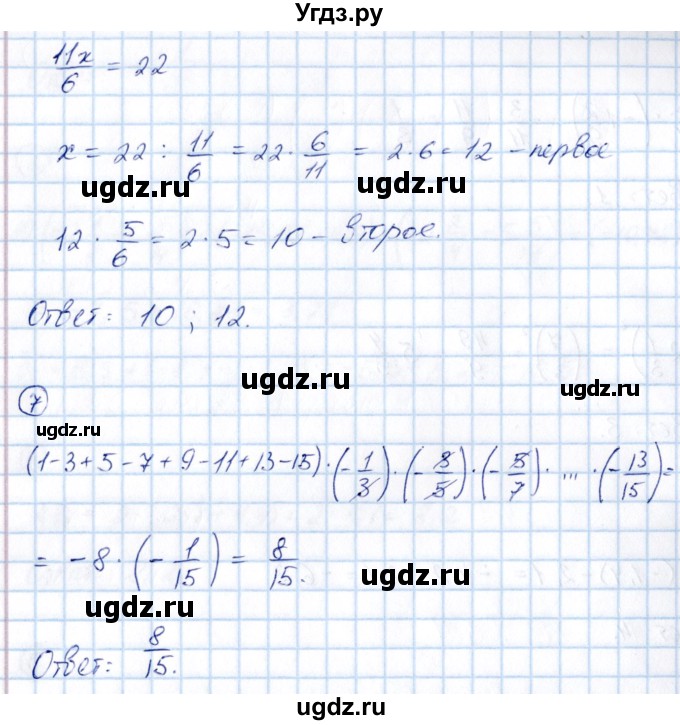 Угдз.ру
11x/6 = 22
x = 22 : 11/6 = 22 · 6/11 = 2 · 6 = 12 – первое
ugdz.ru ugdz.ru
12 · 5/6 = 2 · 5 = 10 – второе.
Ответ: 10 ; 12.
ugdz.ru
7
ugdz.ru
(1 - 3 + 5 - 7 + 9 - 11 + 13 - 15) · (- 1/3) · (- 3/5) · (- 5/7) · ... · (- 13/15) =
ugdz.ru
= - 8 · (- 1/15) = 8/15.
ugdz.ru
Ответ: 8/15.
ugdz.ru